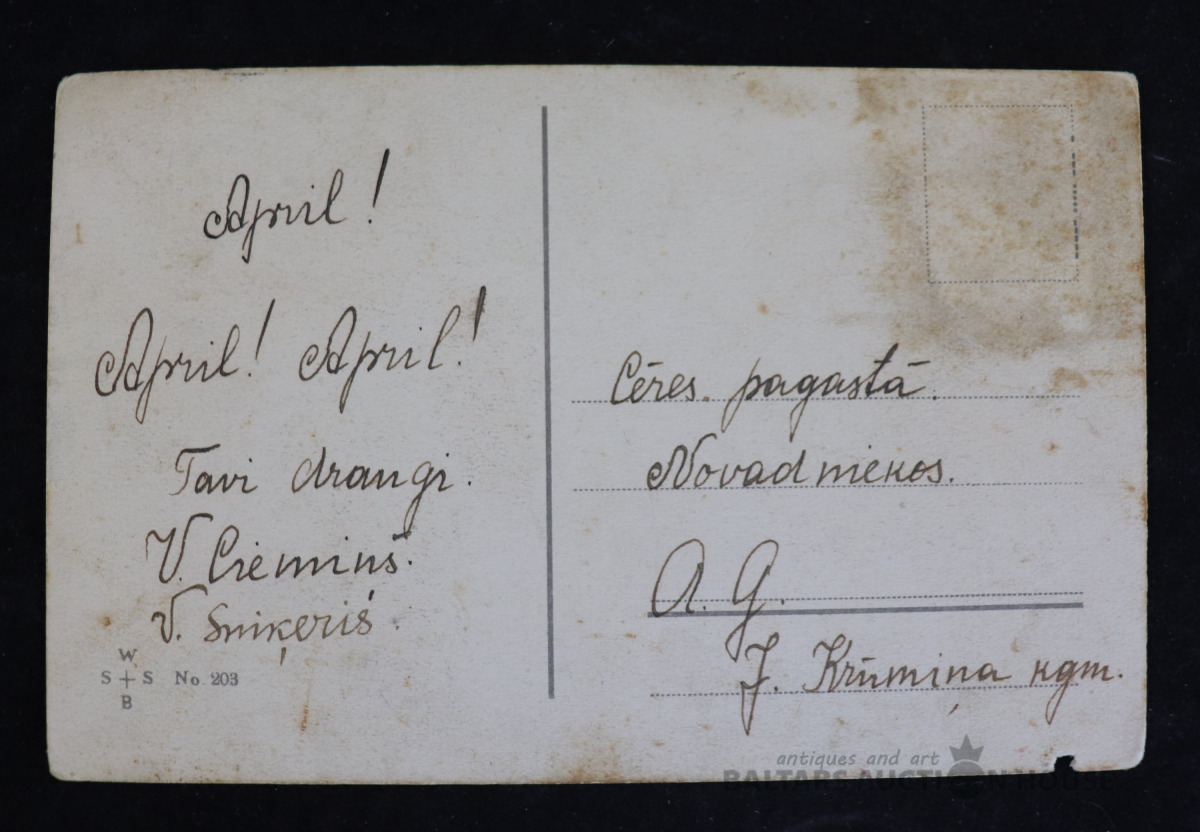 April!
April! April!
Tavi draugi.
V. Ciemiņš.
V. Sniķeris.
W
S + S No. 203
B
Cēres pagastā.
Novadniekos.
A. G.
J. Krūmiņa kgm.
antiques and art
BALTARS AUCTION HOUSE